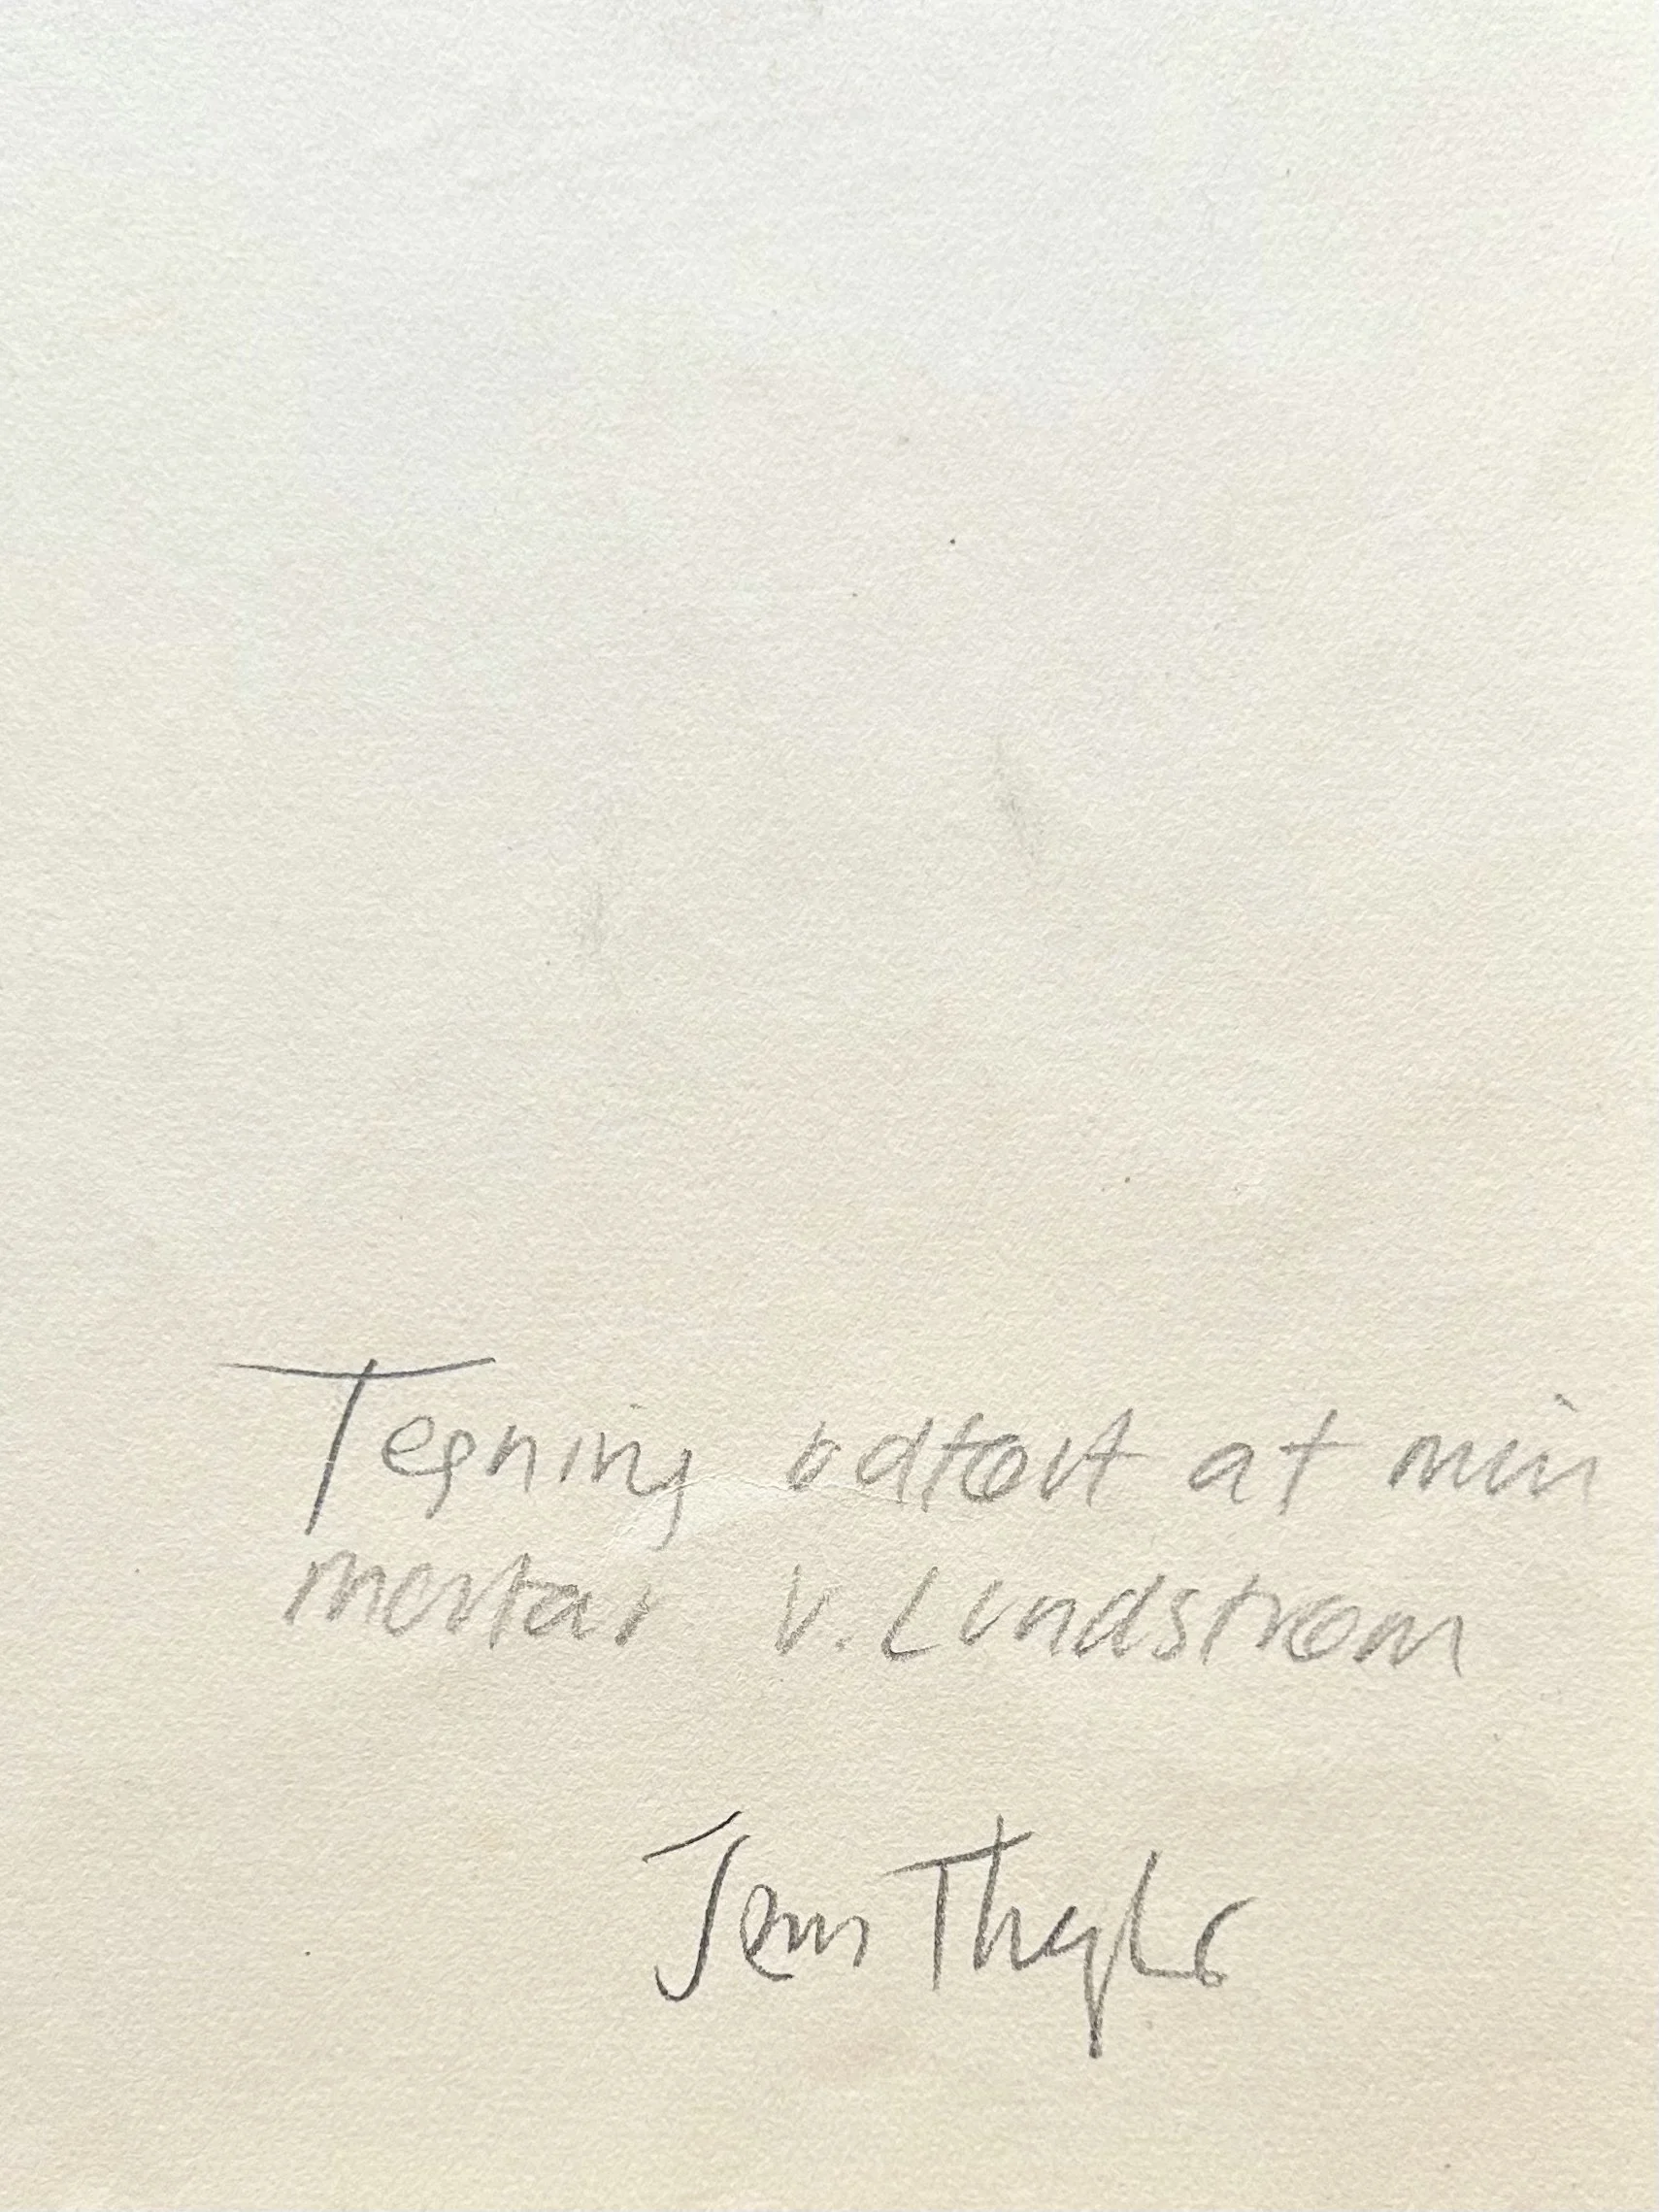 Tegning udført af min
morfar V. Lundstrøm
Jens Thegler